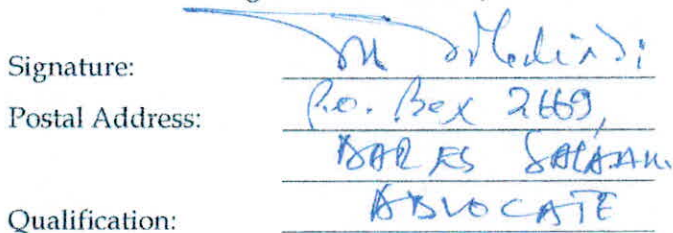 Signature:
Postal Address: P.O. Box 2669,
DAR ES SALAAM.
Qualification: ADVOCATE